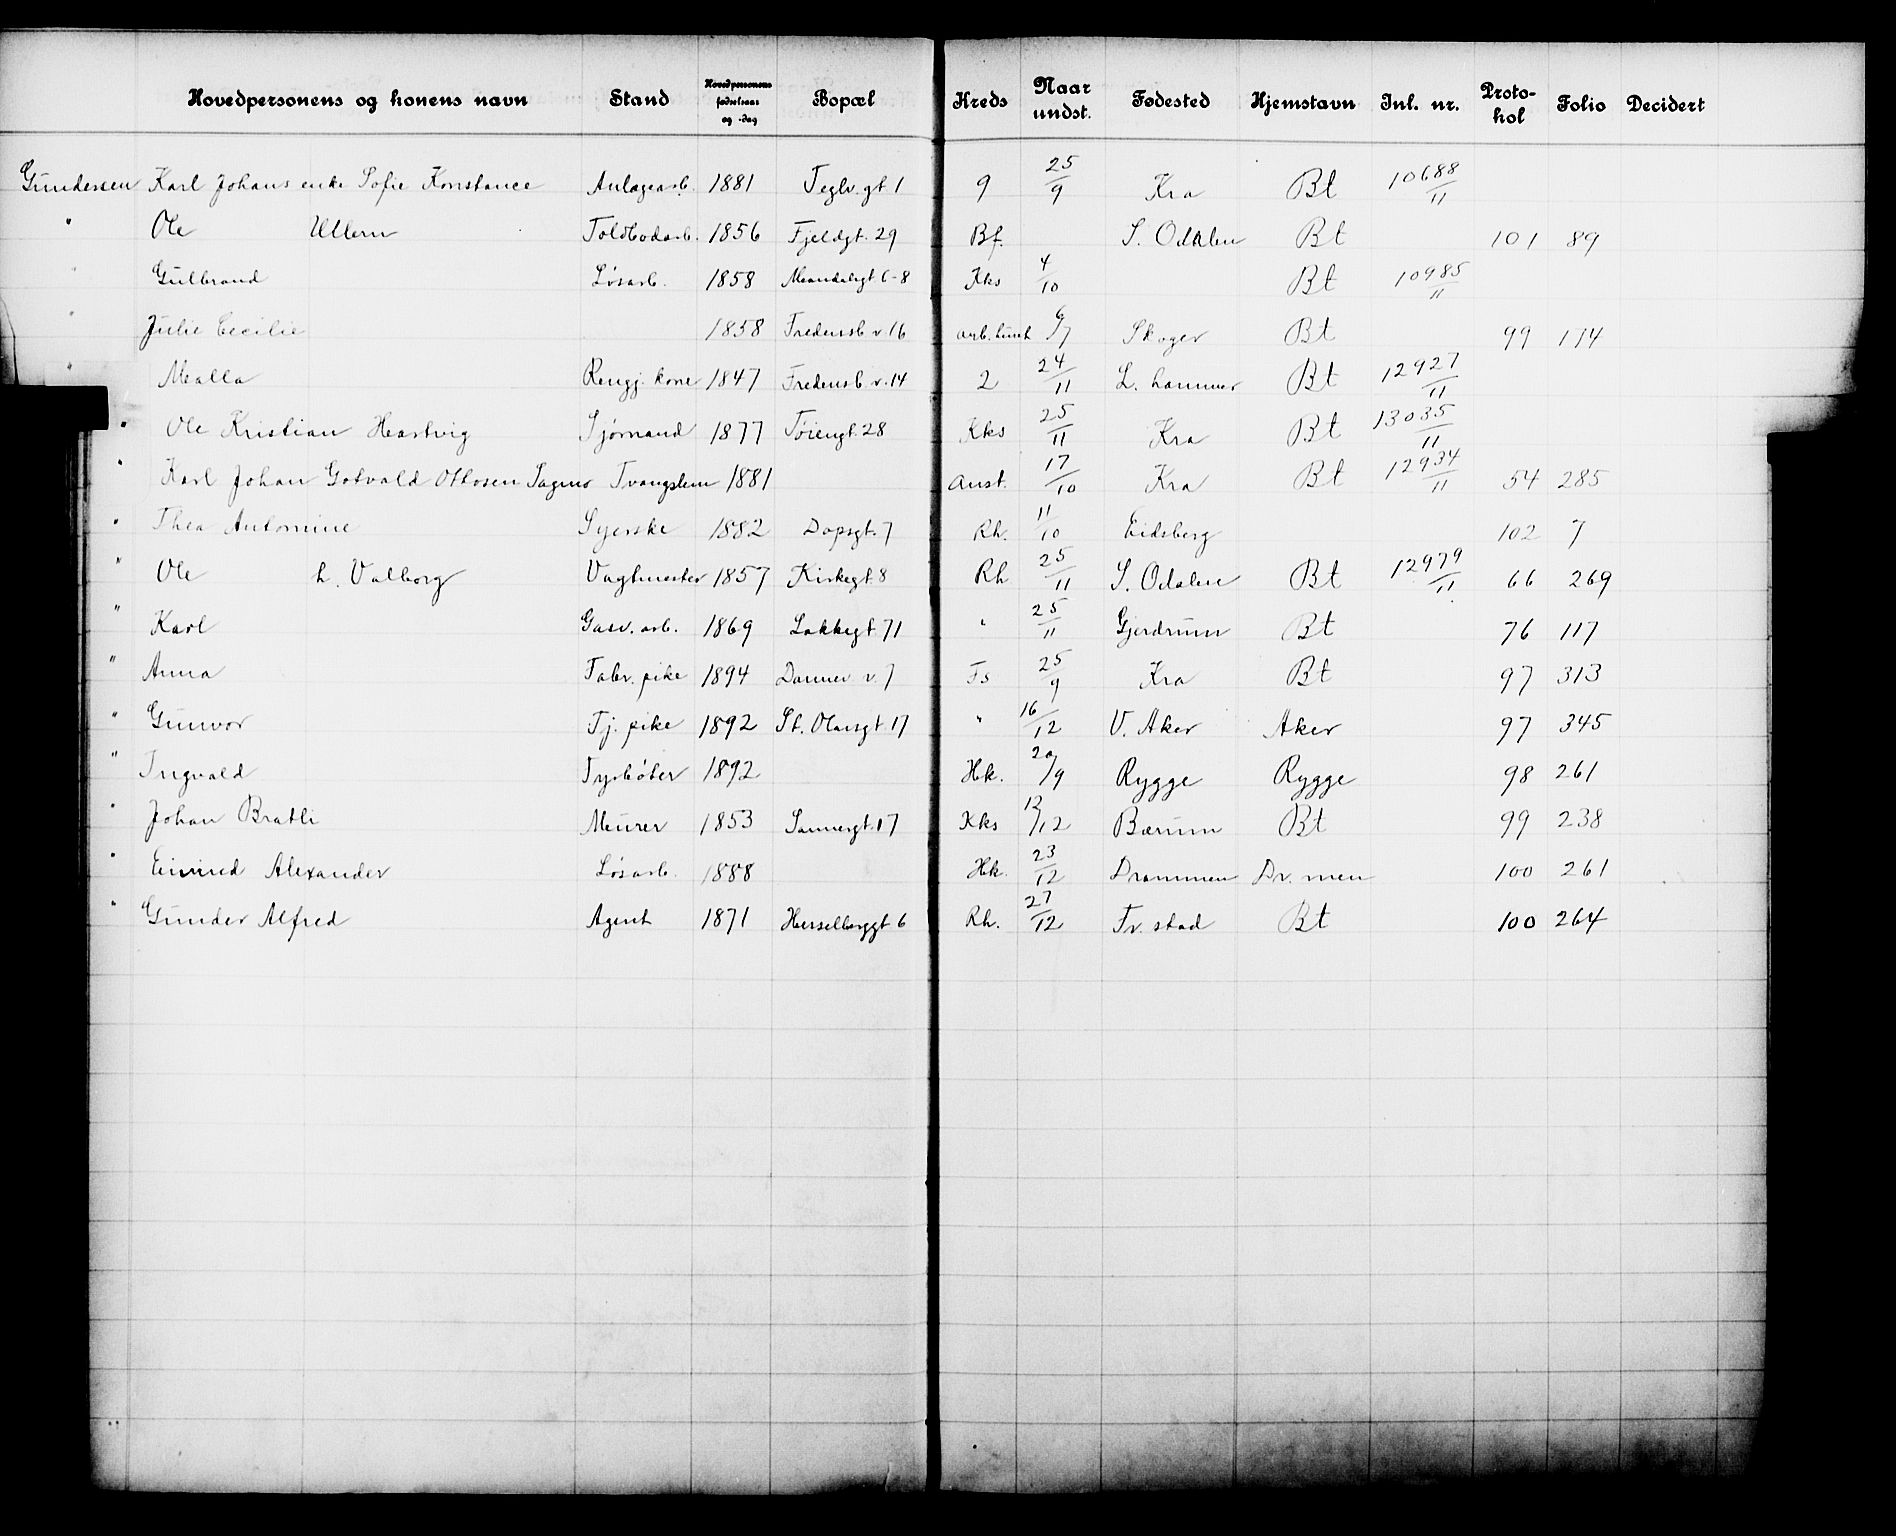 Hovedpersonens og konens navn Stand Hovedpersonens fødselsaar og -dag Bopæl Kreds Naar undst. Fødested Hjemstavn Inl. nr. Proto-kol Folio Decidert
Gundersen Karl Johans enke Sofie Konstance Anlægsarb. 1881 Teglv.gt 1 9 25/9 Kra Bt 10688/11
" Ole Ullern Toldbodarb. 1856 Fjeldgt. 29 Bf. S. Odalen Bt 101 89
" Gulbrand Løsarb. 1858 Mandalsgt 6-8 Kks 4/10 Bt 10985/11
" Julie Cecilie 1858 Fredensb v. 16 6/7 Skoger Bt 99 174
" Malla Rengj. kone 1847 Fredensb. v. 14 2 24/11 L. hammer Bt 12927/11
" Ole Kristian Hartvig Sjømand 1877 Tøiengt. 28 Kks 25/11 Kra Bt 13035/11
" Karl Johan Gotvald Ottosen Sagmo Tvangslem 1881 Anst. 17/10 Kra Bt 12934/11 54 285
" Thea Antomine Syerske 1882 Dopsgt. 7 Rh. 11/10 Eidsberg 102 7
" Ole h. Valborg Vagtmester 1857 Kirkegt. 8 Rh 25/11 S. Odalen Bt 12979/11 66 269
" Karl Gasv. arb. 1869 Lakkegt. 71 " 25/11 Gjerdrum Bt 76 117
" Anna Fabr. pike 1894 Dannev v. 7 Fs 25/9 Kra Bt 97 313
" Gunvor Tj. pike 1892 St. Olavsgt. 17 " 16/12 V. Aker Aker 97 345
" Ingvald Fyrbøter 1892 Hk. 20/9 Rygge Rygge 98 261
" Johan Bratli Murer 1853 Sannergt. 17 Kks 12/12 Bærum Bt 99 238
" Eivind Alexander Løsarb. 1888 Hk. 23/12 Drammen Dr. men 100 261
" Gunder Alfred Agent 1871 Herselbsggt 6 Rh. 27/12 Fr. stad Bt 100 264